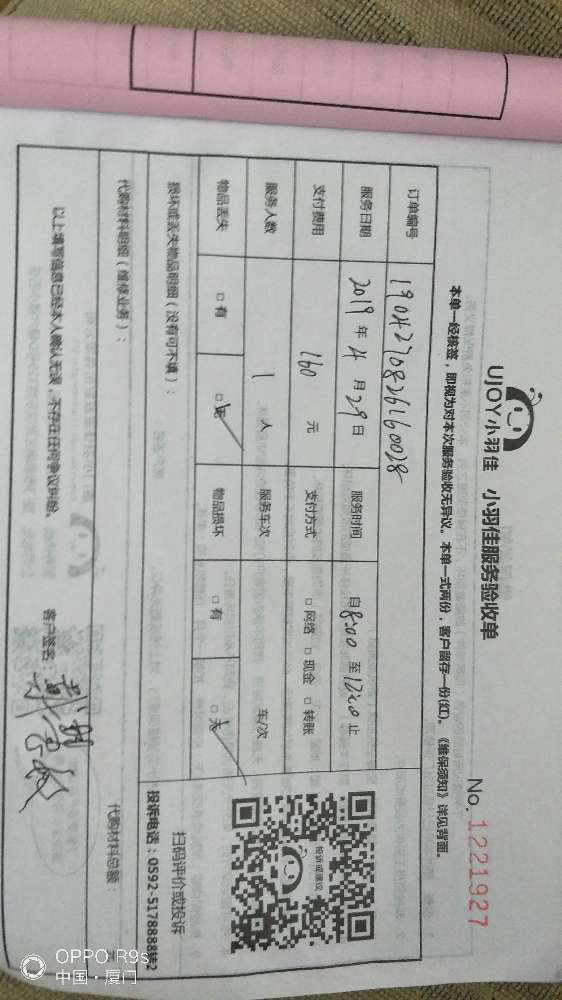 UJOY小羽佳 小羽佳服务验收单
No. 1221927
本单一经核签，即视为对本次服务验收无异议。本单一式两份，客户留存一份(红)。《维保须知》详见背面。
订单编号 1904270826160028
服务日期 2019 年 4 月 29 日 服务时间 自 8:00 至 12:00 止
支付费用 160 元 支付方式 □ 网络 □ 现金 □ 转账
服务人数 1 人 服务车次 车/次
物品丢失 □ 有 □ 无 物品损坏 □ 有 □ 无
投诉或建议
扫码评价或投诉
投诉电话：0592-5178888转2
损坏或丢失物品明细（没有可不填）：
代购材料明细（维修业务）：
代购材料总额： 元
以上填写信息已经本人确认无误，不存在任何争议纠纷。
客户签名：
OPPO R9s
中国·厦门